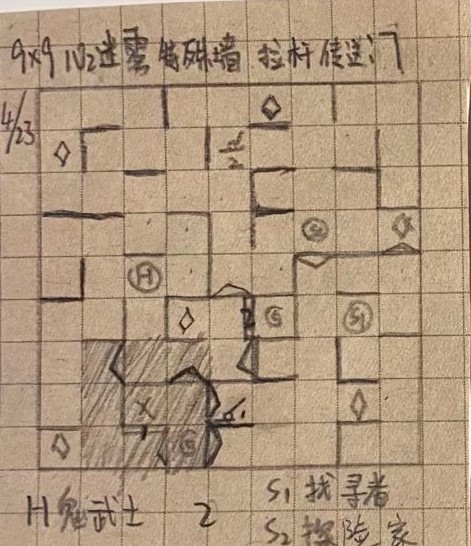 9x9 1V2迷雾 特殊墙 拉杆传送门
4/23
2
H
S1
G
2
G
X
1
G
H 鬼武士 2 S1 找寻者
S2 探险家